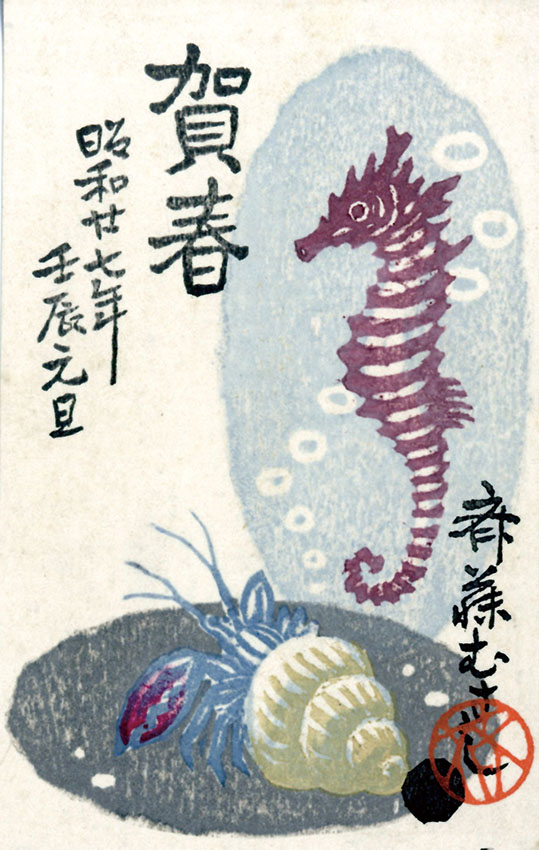 賀春
昭和廿七年
壬辰元旦
斎藤むさし